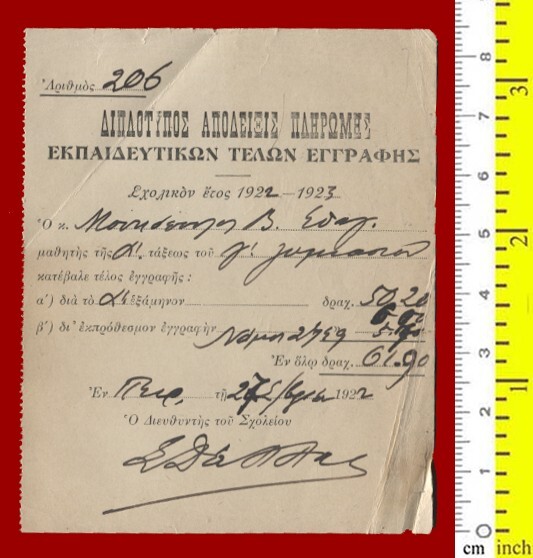 Ἀριθμὸς 206
ΔΙΠΛΟΤΥΠΟΣ ΑΠΟΔΕΙΞΙΣ ΠΛΗΡΩΜΗΣ
ΕΚΠΑΙΔΕΥΤΙΚΩΝ ΤΕΛΩΝ ΕΓΓΡΑΦΗΣ
Σχολικὸν ἔτος 1922—1923
Ὁ κ. Β.
μαθητὴς τῆς Α΄. τάξεως τοῦ γ΄ γυμνασίου
κατέβαλε τέλος ἐγγραφῆς :
α΄) διὰ τὸ Α΄ ἑξάμηνον δραχ. 50,20
β΄) δι' ἐκπρόθεσμον ἐγγραφὴν
Νόμος 2759
Ἐν ὅλῳ δραχ. 61.90
Ἐν Πειρ. τῇ 1922
Ὁ Διευθυντὴς τοῦ Σχολείου
8
7
6
5
4
3
2
1
0
cm
3
2
1
inch